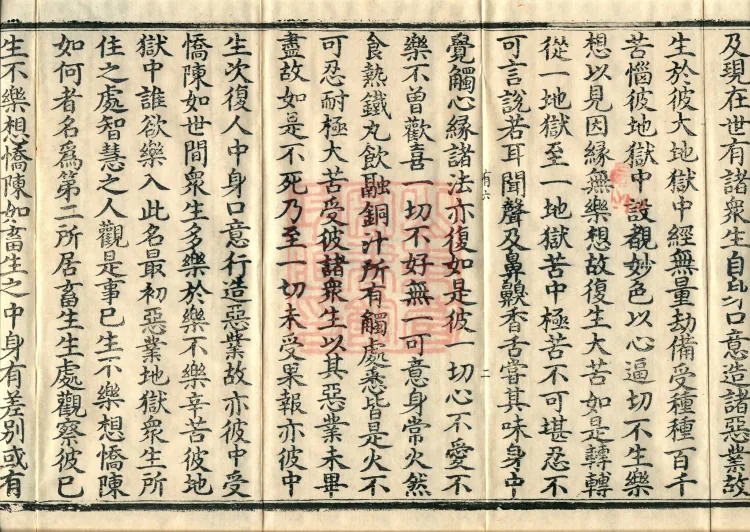 及現在世有諸衆生自身口意造諸惡業故
生於彼大地獄中經無量劫備受種種百千
苦惱彼地獄中設覩妙色以心逼切不生樂
想以見因縁無樂想故復生大苦如是轉轉
從一地獄至一地獄苦中極苦不可堪忍不
可言說若耳聞聲及鼻齅香舌甞其味身中
有六
二
覺觸心縁諸法亦復如是彼一切心不愛不
樂不曾歡喜一切不好無一可意身常火然
食熱鐵丸飲融銅汁所有觸處悉皆是火不
可忍耐極大苦受彼諸衆生以其惡業未畢
盡故如是不死乃至一切未受果報亦彼中
生次復人中身口意行造惡業故亦彼中受
憍陳如世間衆生多樂於樂不樂辛苦彼地
獄中誰欲樂入此名最初惡業地獄衆生所
住之處智慧之人觀是事已生不樂想憍陳
如何者名爲第二所居畜生生處觀察彼已
生不樂想憍陳如畜生之中身有差別或有